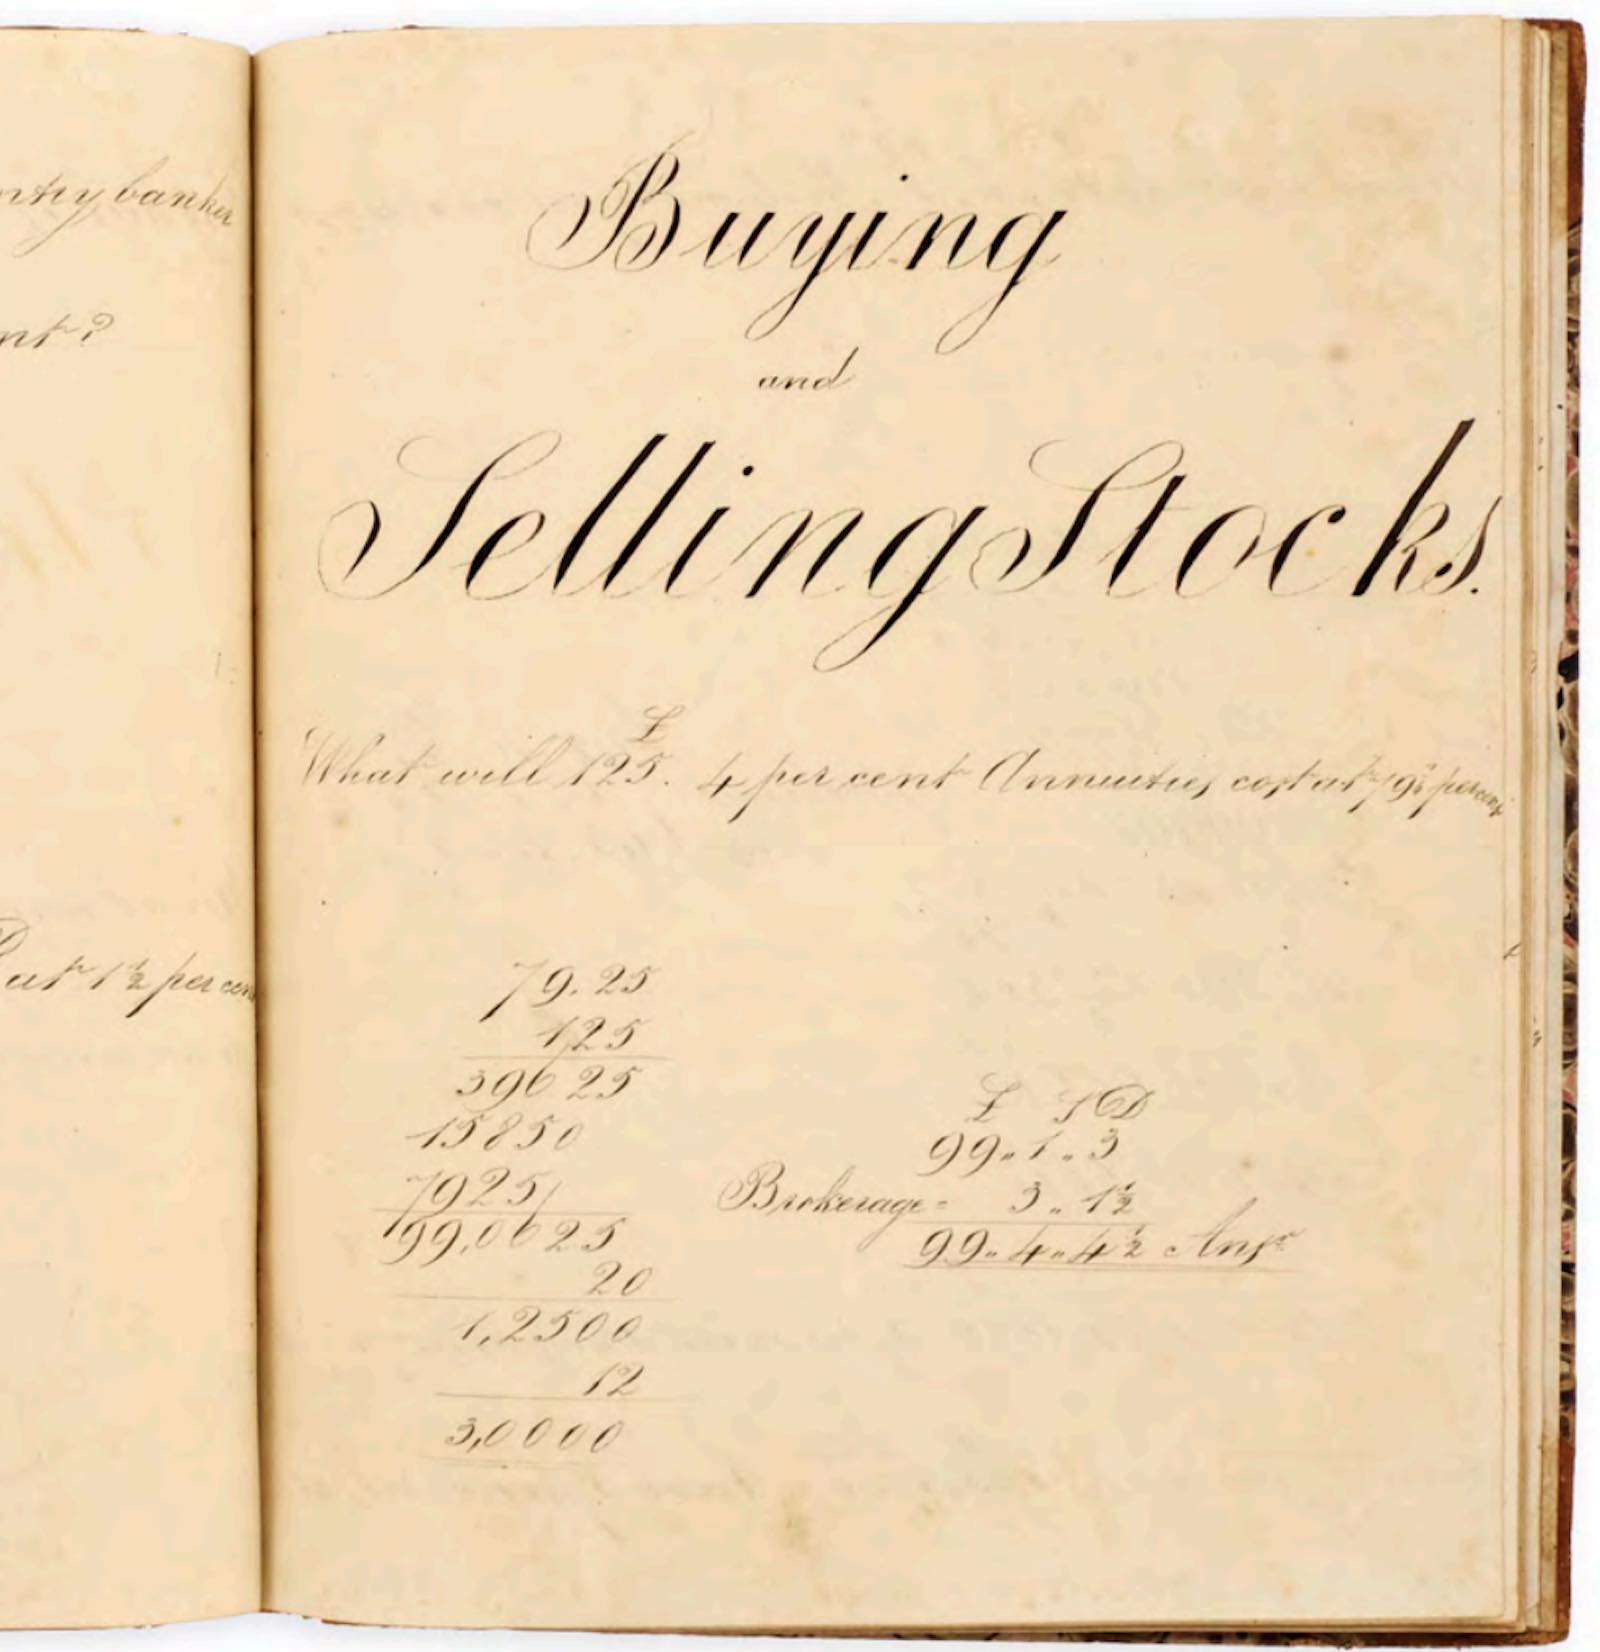 ntry banker
nt?
at 1½ per cen
Buying
and
Selling Stocks.
£
What will 125. 4 per cent Annuities cost at 79¼ per cent
79.25
125
39625
15850
7925
99,0625
20
1,2500
12
3,0000
£ S D
99.. 1.. 3
Brokerage = 3.. 1½
99.. 4.. 4½ Ansr